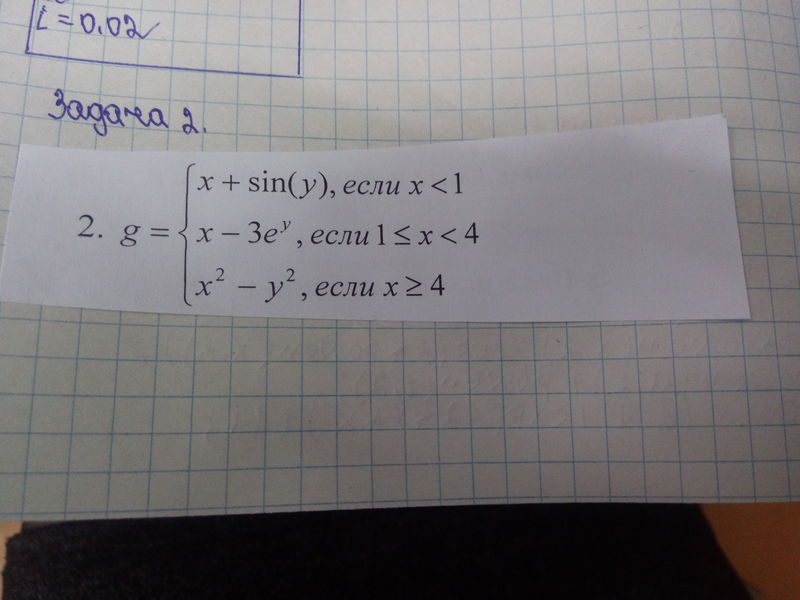 i = 0.02
Задача 2.
x + sin(y), если x < 1
2. g = { x − 3e^y, если 1 ≤ x < 4
x² − y², если x ≥ 4